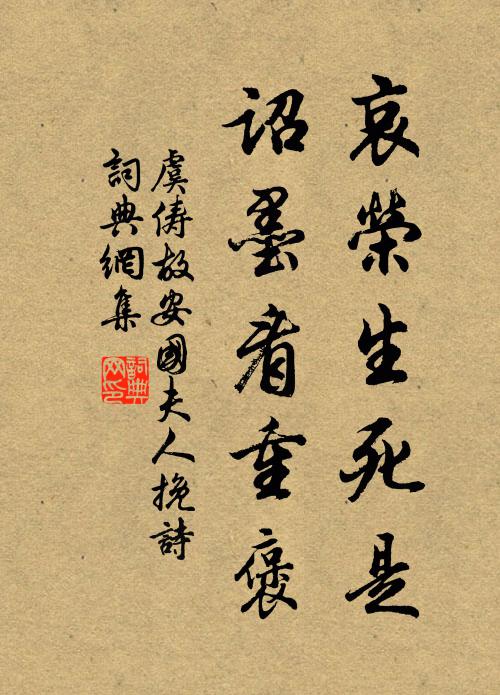 哀榮生死是
詔墨看重褒
虞儔故安國夫人挽詩
詞典網集
詞典网印